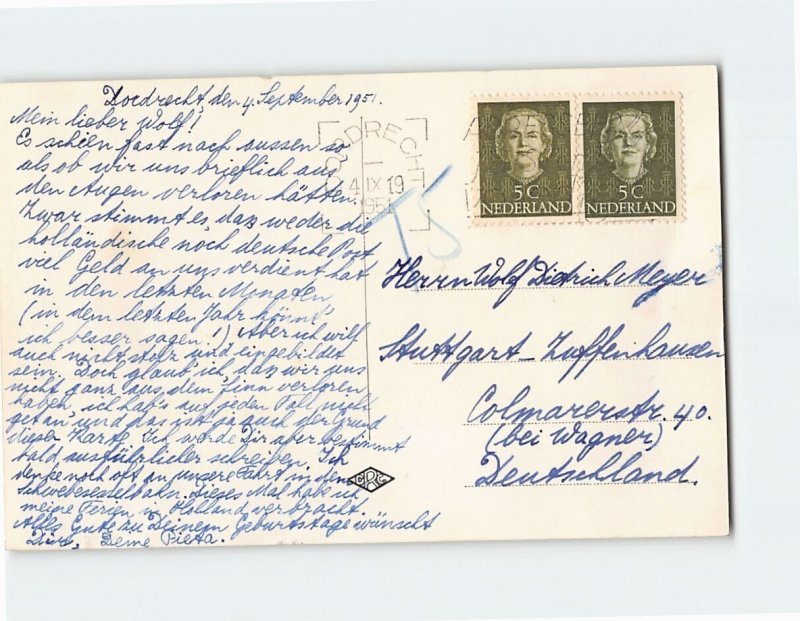 Dordrecht, den 4. September 1951.
Mein lieber Wolf!
Es schien fast nach aussen so
als ob wir uns brieflich aus
den Augen verloren hätten.
Zwar stimmt es, daz weder die
holländische noch deutsche Post
viel Geld an uns verdient hat
in den letzten Monaten
(in dem letzten Jahr könnt'
ich besser sagen!) Aber ich will
auch nicht stolz und eingebildet
sein. Doch glaub' ich daz wir uns
nicht ganz aus dem Sinn verloren
haben, ich hab's auf jeden Fall nicht
getan und das ist ja auch der Grund
dieser Karte. Ich werde Dir aber bestimmt
bald ausführlicher schreiben. Ich
denke noch oft an unsere Fahrt in dem
Schwebesesselbahn. Dieses Mal habe ich
meine Ferien in Holland verbracht.
Alles Gute zu Deinem Geburtstage wünscht
Dir, Deine Pieta.
DORDRECHT
4 IX 19
1951
T5
5 C
NEDERLAND
5 C
NEDERLAND
Herrn Wolf Dietrich Meyer
Stuttgart-Zuffenhausen
Colmarerstr. 40.
(bei Wagner)
Deutschland.